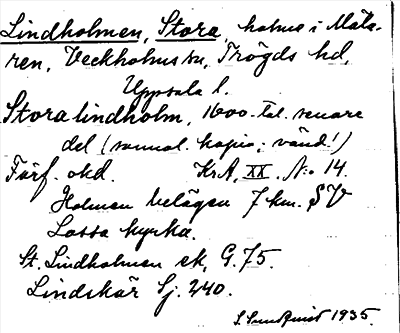 Lindholmen, Stora, holme i Mäla-
ren, Veckholms sn, Trögds hd,
Uppsala l.
Stora lindholm, 1600-tal. senare
del (samml. kopia; vänd!)
Förf. okd. KrA, XX. No. 14.
Holmen belägen 7 km. SV
Lossa kyrka.
St. Lindholmen ek. G. 75.
Lindskär Sj. 240.
S. Sundquist 1935.